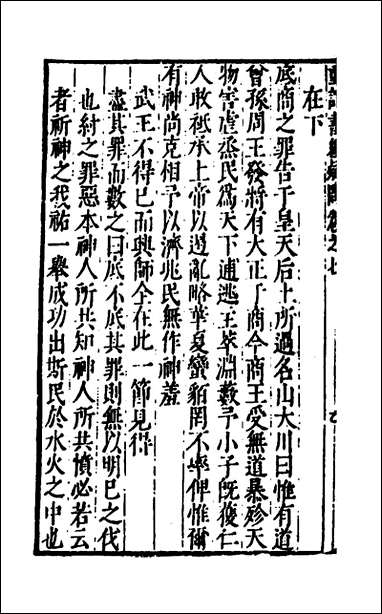 在下
底商之罪告于皇天后土所過名山大川曰惟有道
曾孫周王發將有大正于商今商王受無道暴殄天
物害虐烝民為天下逋逃主萃淵藪予小子既獲仁
人敢祗承上帝以遏亂略華夏蠻貊罔不率俾惟爾
有神尚克相予以濟兆民無作神羞
武王不得已而興師全在此一節見得
盡其罪而數之曰底不底其罪則無以明己之伐
也紂之罪惡本神人所共知神人所共憤必若云
者祈神之我祐一舉成功出斯民於水火之中也